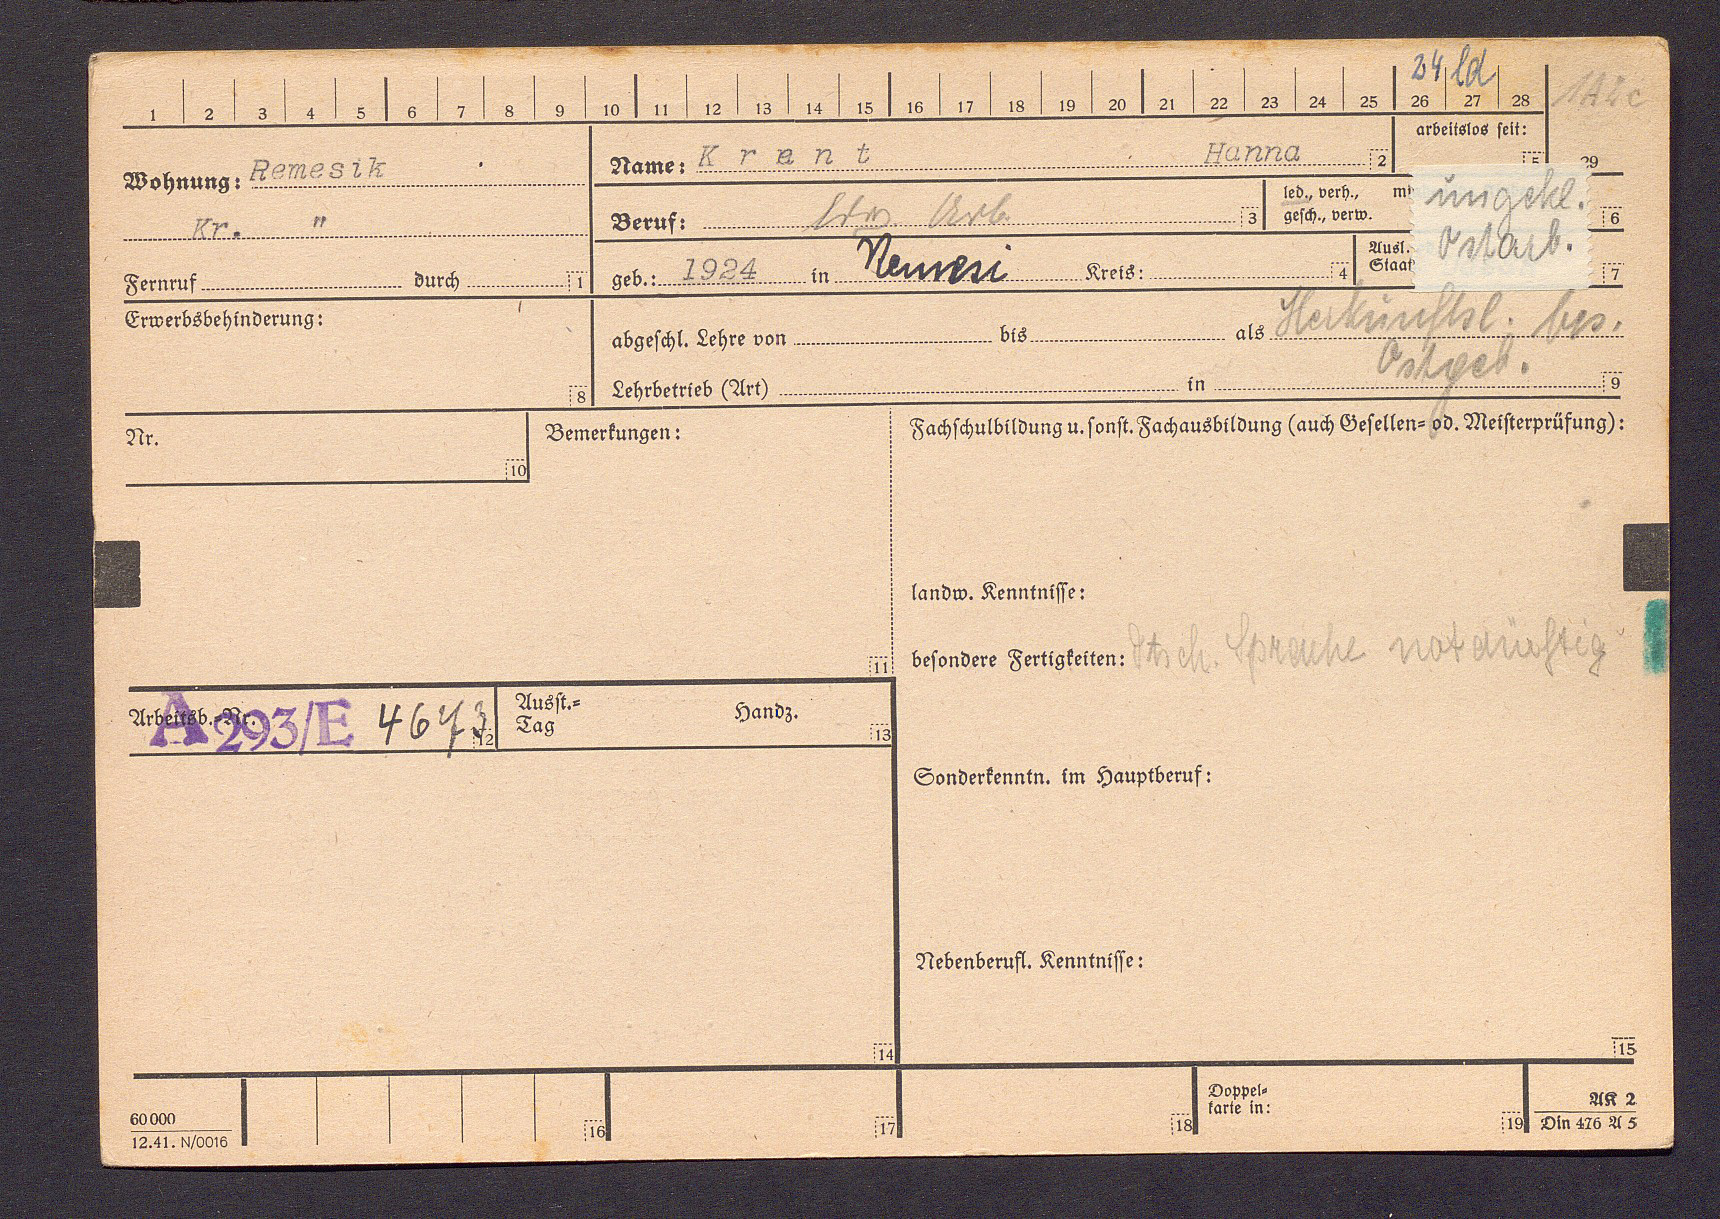 24 ld
1 2 3 4 5 6 7 8 9 10 11 12 13 14 15 16 17 18 19 20 21 22 23 24 25 26 27 28 29
arbeitslos seit: 5
Wohnung: Remesik
Kr. "
Fernruf durch 1
Name: Krant Hanna 2
Beruf: ldw. Arb. 3
led., verh.,
gesch., verw.
6
geb.: 1924 in Kreis: 4
Ausl.
Staat
7
ungekl.
Ostarb.
Erwerbsbehinderung:
8
abgeschl. Lehre von bis als Herkunftsl. bes.
Ostgeb.
Lehrbetrieb (Art) in 9
Nr.
10
Bemerkungen:
11
Fachschulbildung u. sonst. Fachausbildung (auch Gesellen- od. Meisterprüfung):
landw. Kenntnisse:
besondere Fertigkeiten: dtsch. Sprache notdürftig
Arbeitsb.-Nr. A 293/E 4673 12
Ausst.-
Tag
Handz.
13
Sonderkenntn. im Hauptberuf:
Nebenberufl. Kenntnisse:
14
15
60 000
12.41. N/0016
16
17
18
Doppel-
karte in:
19
AK 2
Din 476 A 5